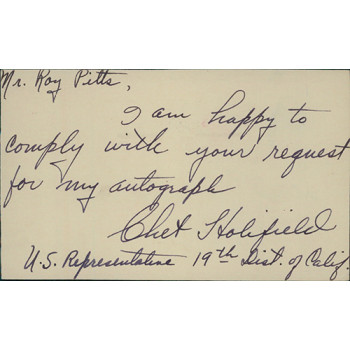 Mr. Roy Pitts,
I am happy to
comply with your request
for my autograph
Chet Holifield
U.S. Representative 19th Dist. of Calif.